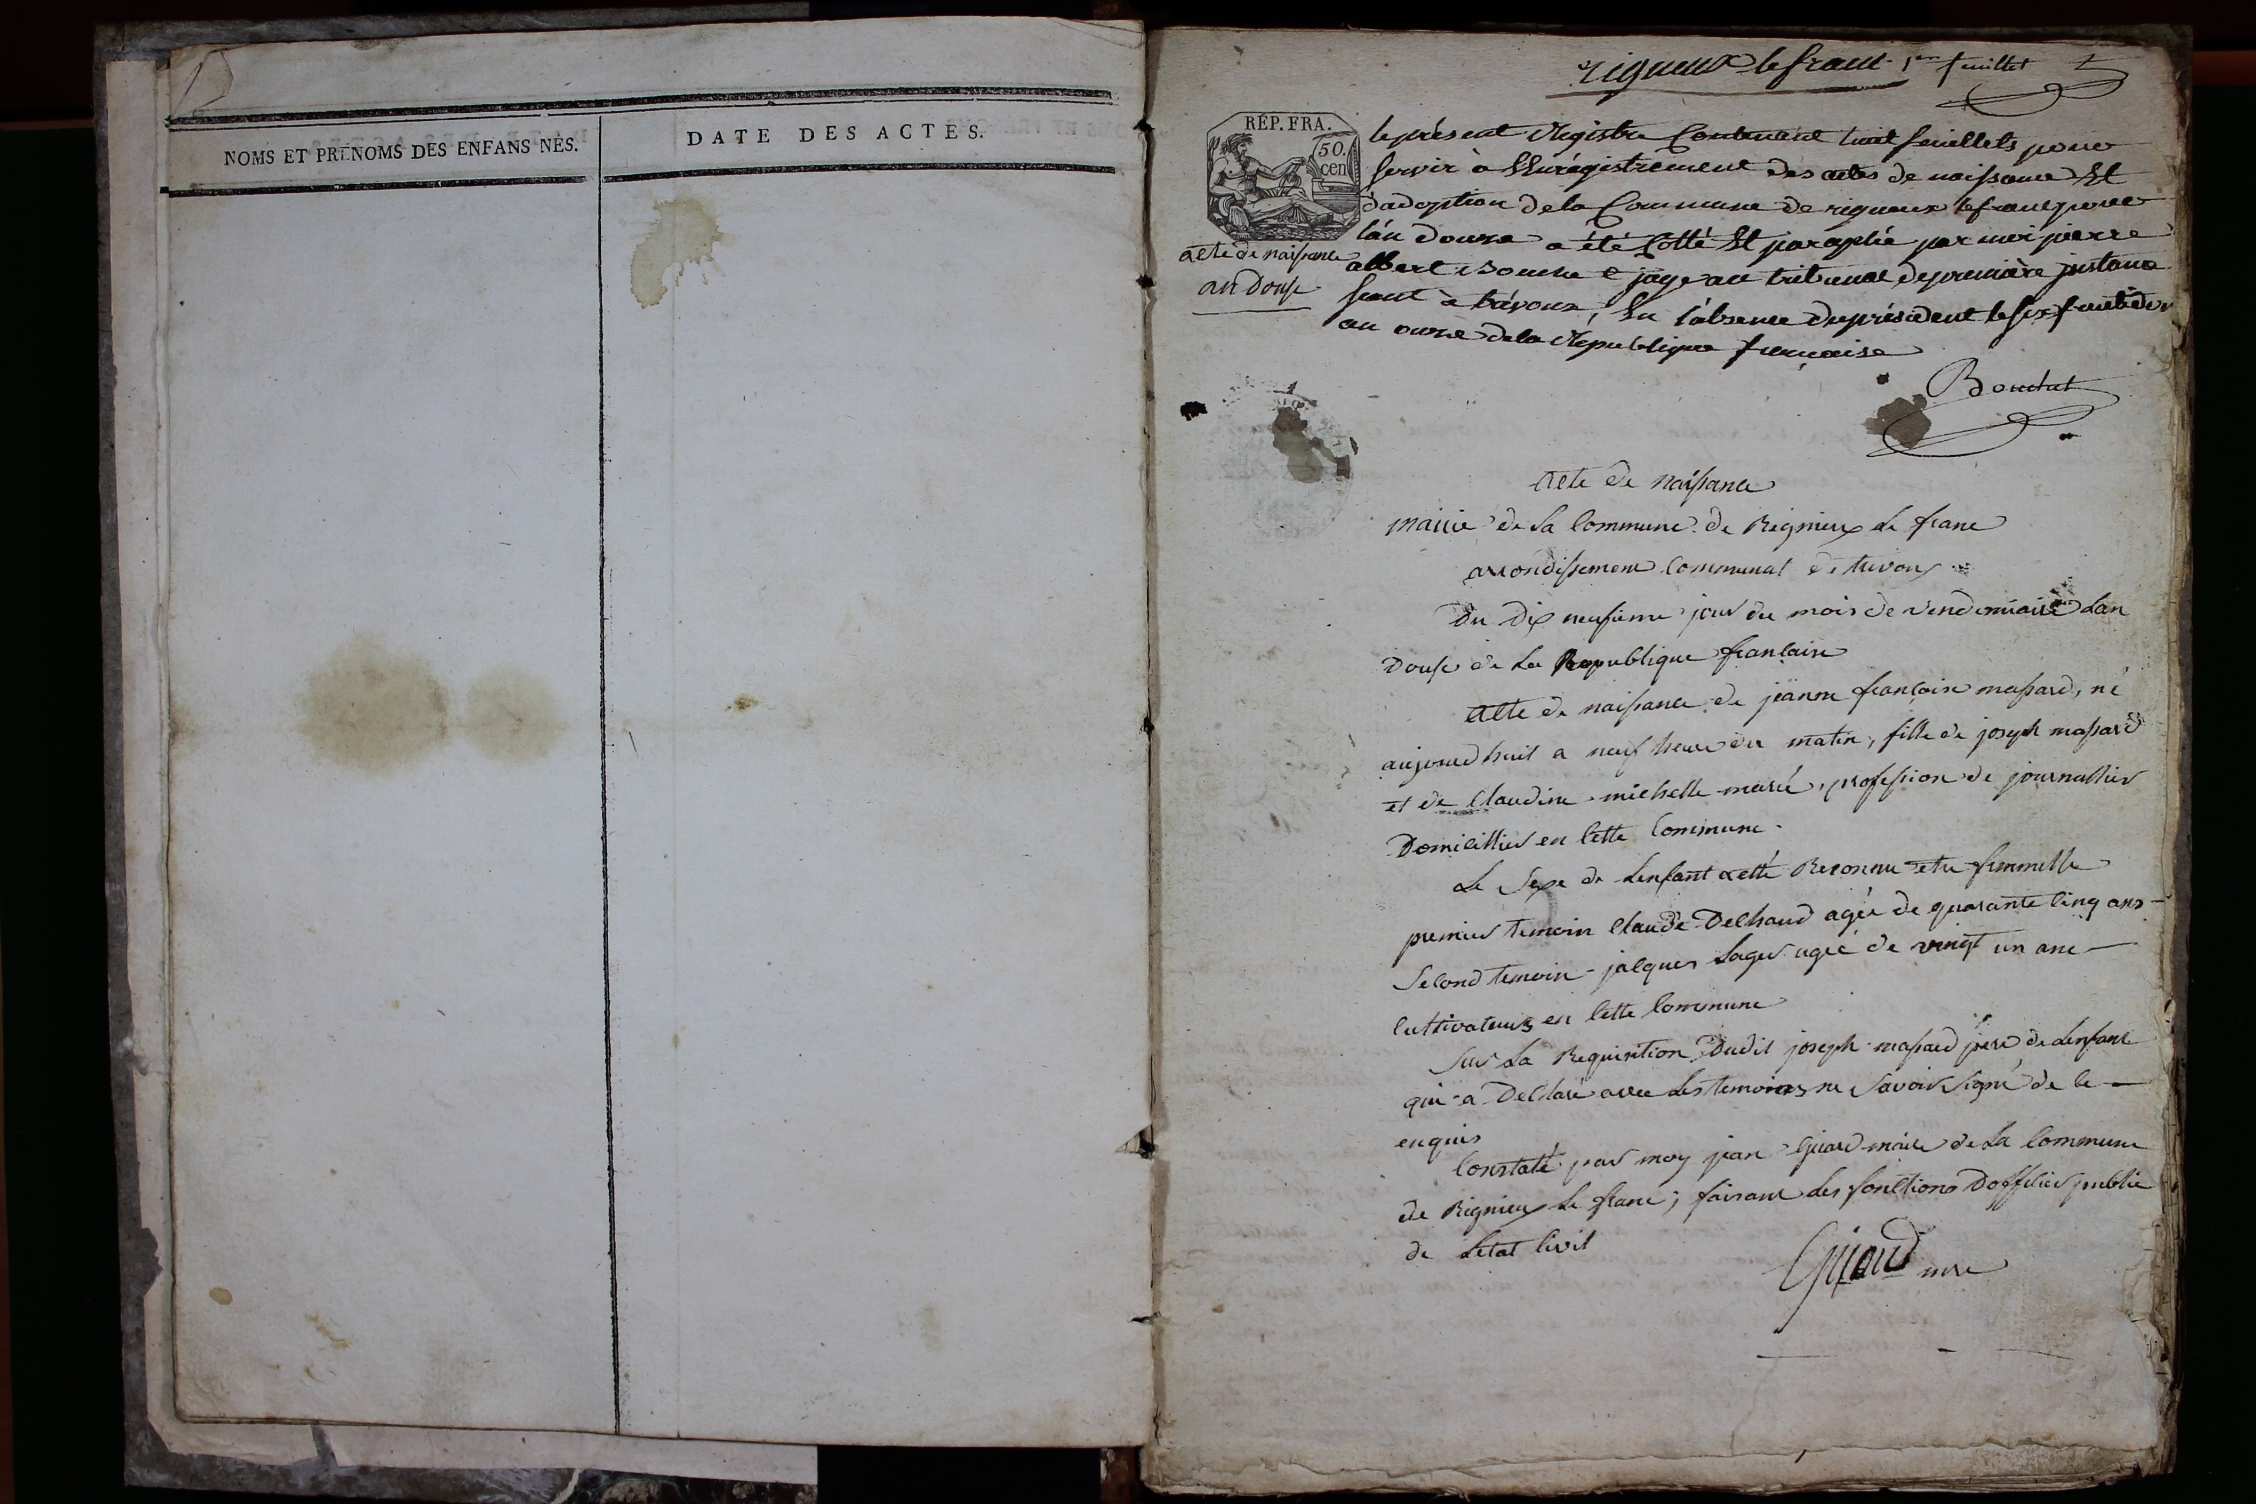 NOMS ET PRÉNOMS DES ENFANS NÉS.
DATE DES ACTES.
rigneux le franc 1er feuillet
REP. FRA.
50.
cen
le présent Registre Contenant huit feuillets pour
servir à L'Enrégistrement des actes de naissance Et
d'adoption de la Commune de rigneux le franc pour
l'an douze a été Cotté Et paraphé par moi pierre
albert juge au tribunal de première instance
seant à trévoux, En l'absence du président le six fructidor
an onze de la République française
acte de naissance
an douse
Acte de naissance
mairie de La Commune de Rignieux Le franc
arrondissement Communal de trevoux
Du Dix neufieme jour du mois de vendemiaire Lan
Douse de La Republique francaise
Acte de naissance de jeanne françoise massard, né
aujourdhuit a neuf heure du matin, fille de joseph massard
et de Claudine michelle marié, profession de journallier
Domicillier en Cette Commune.
Le Sexe de Lenfant a etté Reconnu etre femmelle
premier temoin Claude Delhaud agée de quarante Cinq ans
Second temoin jacques Lager agée de vingt un ans
Cultivateurs en Cette Commune
Sur La Requisition Dudit joseph massard pere de Lenfant
qui a Declaré avec Les temoins ne Savoir Signé de ce
enquis
Constaté par moy jean Girard maire de La Commune
de Rignieux Le franc, faisant Les fonctions Dofficier public
de Letat Civil
Girard mre